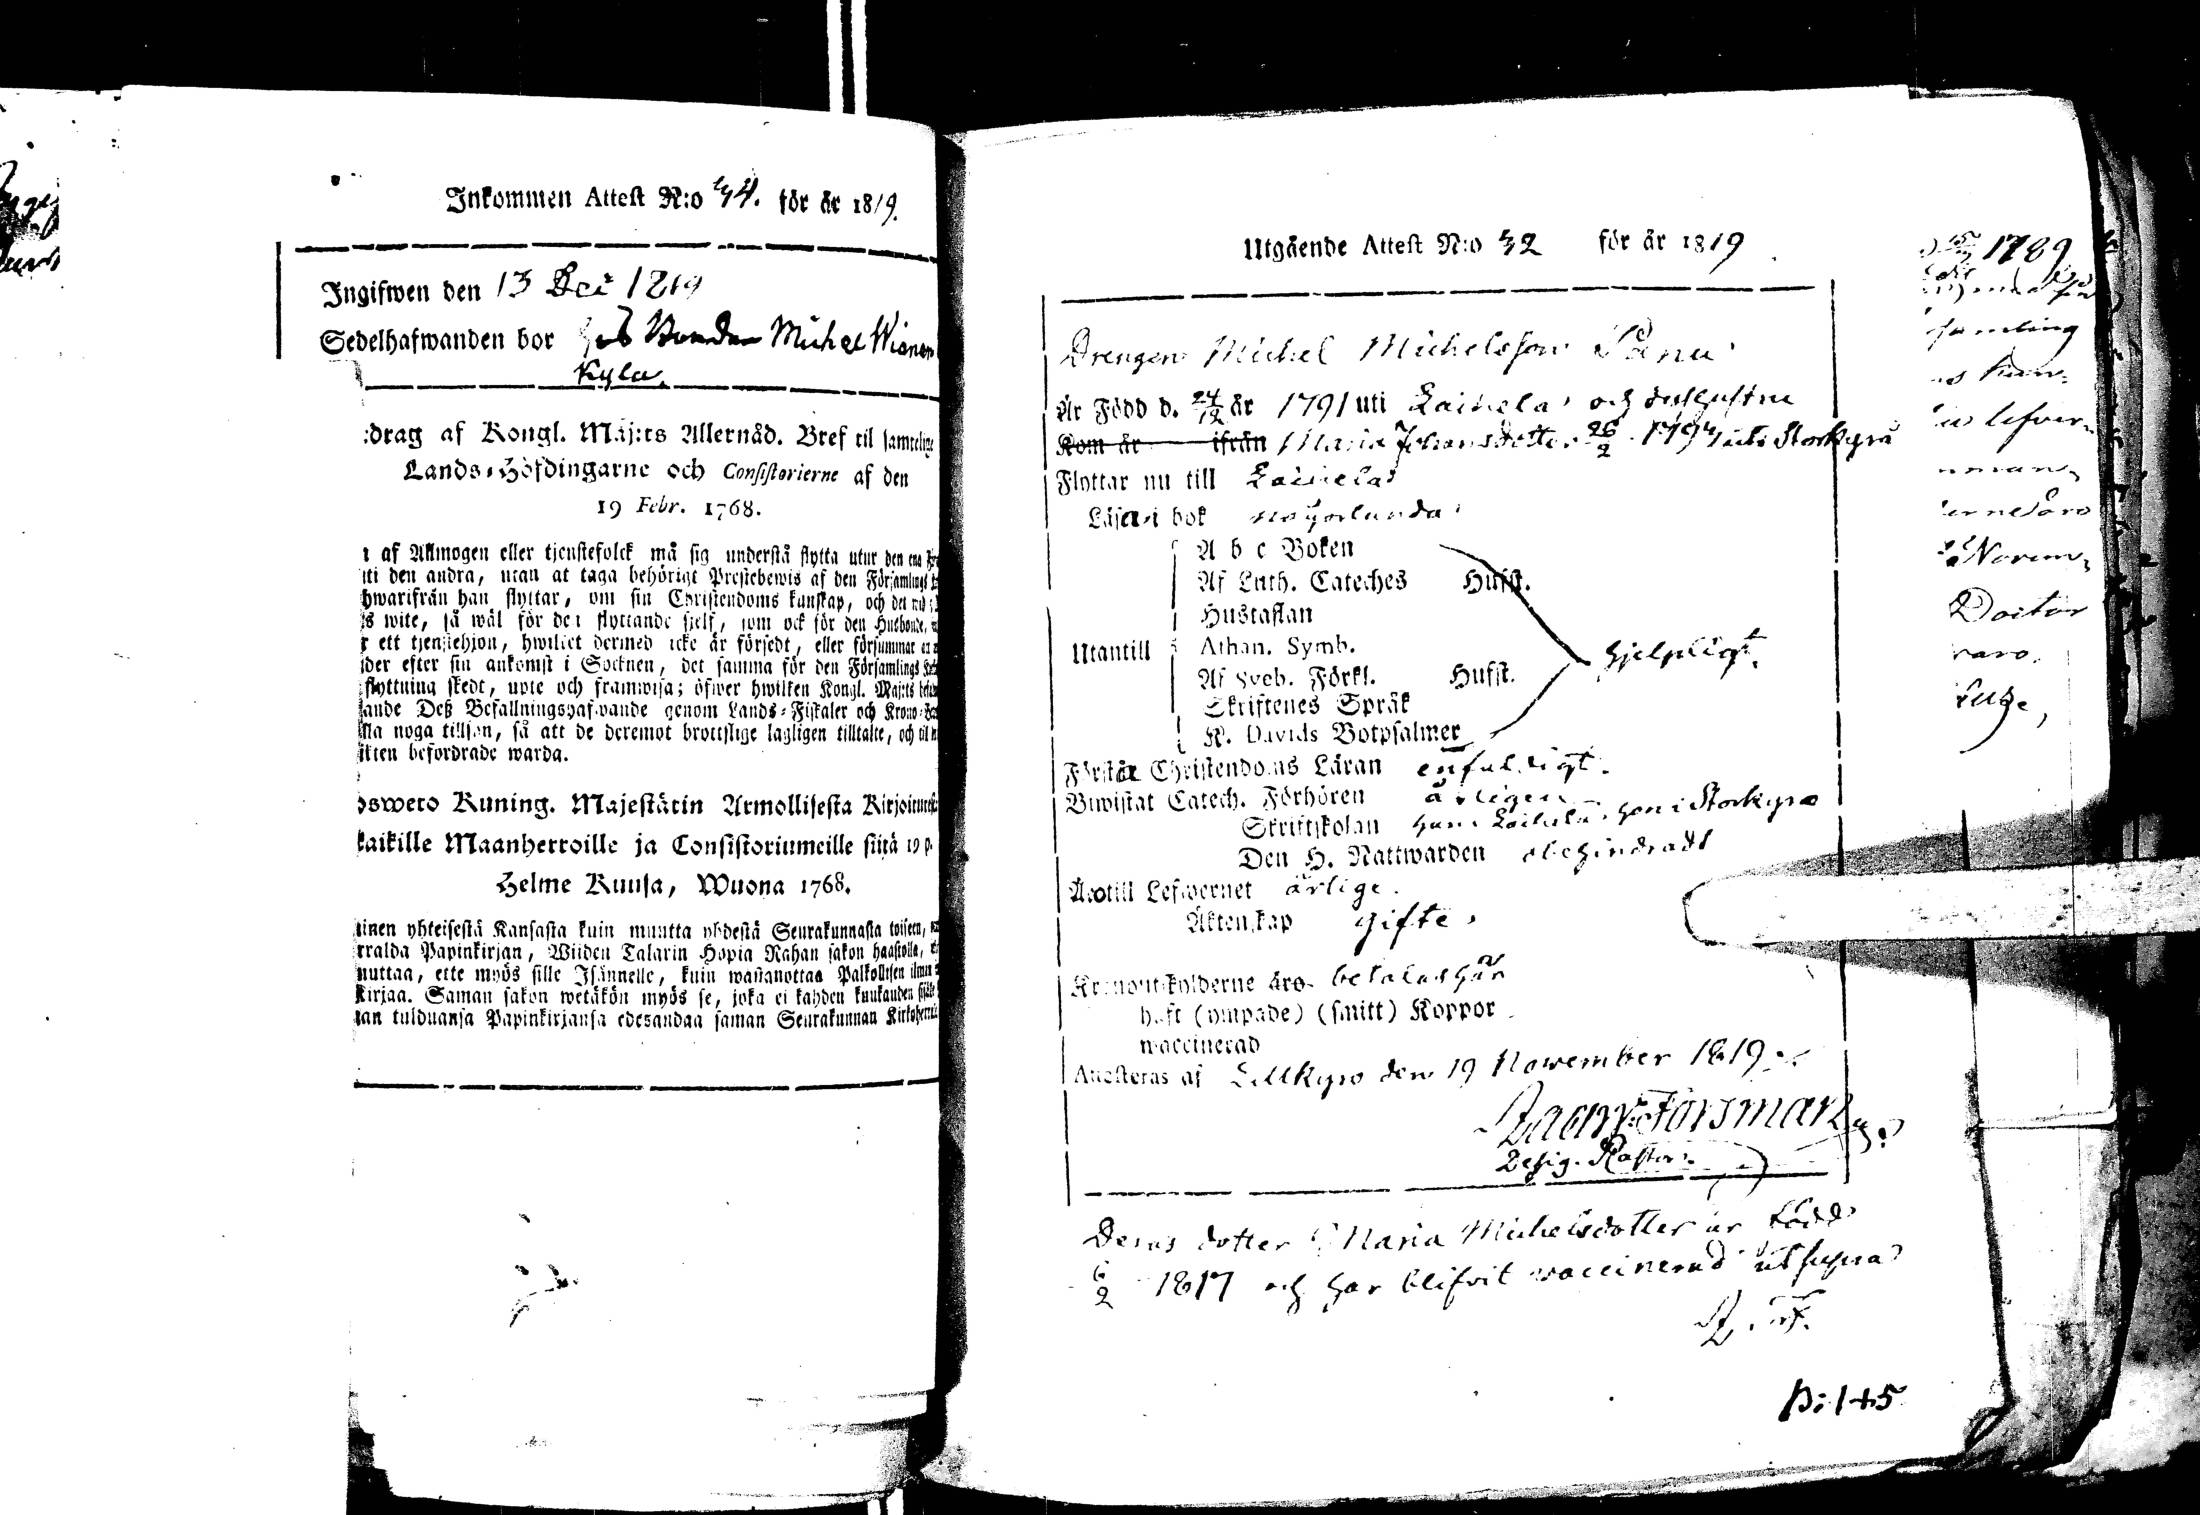 Inkommen Attest N:o 44. för år 1819.
Ingifwen den 13 Dec 1819
Sedelhafwanden bor hos Bonden Michel
Kyla.
:drag af Kongl. Maj:ts Allernåd. Bref til samtelige
Lands-Höfdingarne och Consistorierne af den
19 Febr. 1768.
af Allmogen eller tjenstefolck må sig understå flytta utur den ena
uti den andra, utan at taga behörigt Prestebewis af den Församlings
hwarifrån han flyttar, om sin Christendoms kunskap, och det wid
s wite, så wäl för den flyttande sjelf, som ock för den Husbonde,
r ett tjenstehjon, hwilcet dermed icke är försedt, eller försummar
der efter sin ankomst i Socknen, det samma för den Församlings
flyttning skedt, upte och framwisa; öfwer hwilken Kongl. Maj:ts
ande Deß Befallningshafwande genom Lands-Fiskaler och Krono-
la noga tillsen, så att de deremot brottslige lagligen tilltalte, och til
kten befordrade warda.
osweto Kuning. Majestätin Armollisesta Kirjoituxesta
kaikille Maanherroille ja Consistoriumeille siitä 19 p.
Helme Kuusa, Wuona 1768.
inen yhteisestä Kansasta kuin muutta yhdestä Seurakunnasta toiseen,
rralda Papinkirjan, Wiiden Talarin Hopia Rahan sakon haastolla,
muuttaa, ette myös sille Isännelle, kuin wastanottaa Palkollisen ilman
kirjaa. Saman sakon wetäkön myös se, joka ei kahden kuukauden sisälle
tan tulduansa Papinkirjansa edesandaa saman Seurakunnan Kirkoherralle
Utgående Attest N:o 42 för år 1819
Drengen Michel Michelsson
Är Född d. 24/12 år 1791 uti Laihela och hustrun
Kom år ifrån Maria Johansdotter 26/2 1794 uti Storkyro
Flyttar nu till Laihela
Läsa i bok någorlunda
A b c Boken
Af Luth. Cateches Hufst.
Hustaflan
Utantill Athan. Symb. hjelpligt.
Af Sveb. Förkl. Hufst.
Skriftenes Språk
K. Davids Botpsalmer
Förstår Christendoms Läran enfaldigt.
Biwistat Catech. Förhören årligen
Skriftskolan han i Laihela, hon i Storkyro
Den H. Nattwarden obehindradt
Äro till Lefwernet ärlige.
Äktenskap gifte
Kronoutskylderne äro betalas här
haft (ympade) (smitt) Koppor
waccinerad
Attesteras af Lillkyro den 19 November 1819
Zachr: Forsman
Desig. Pastor
Deras dotter Maria Michelsdotter är född
6/2 1817 och har blifvit vaccinerad ut supra
Z. F.
p: 145
1789
samling
lefver-
Doctor
varo